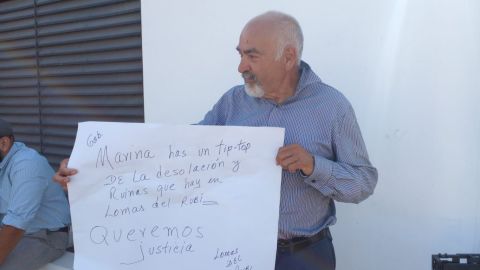 Gob.
Marina has un tip-top
DE La desolación y
Ruinas que hay en
Lomas del Rubí
Queremos
justicia
Lomas
DEL
Rubí